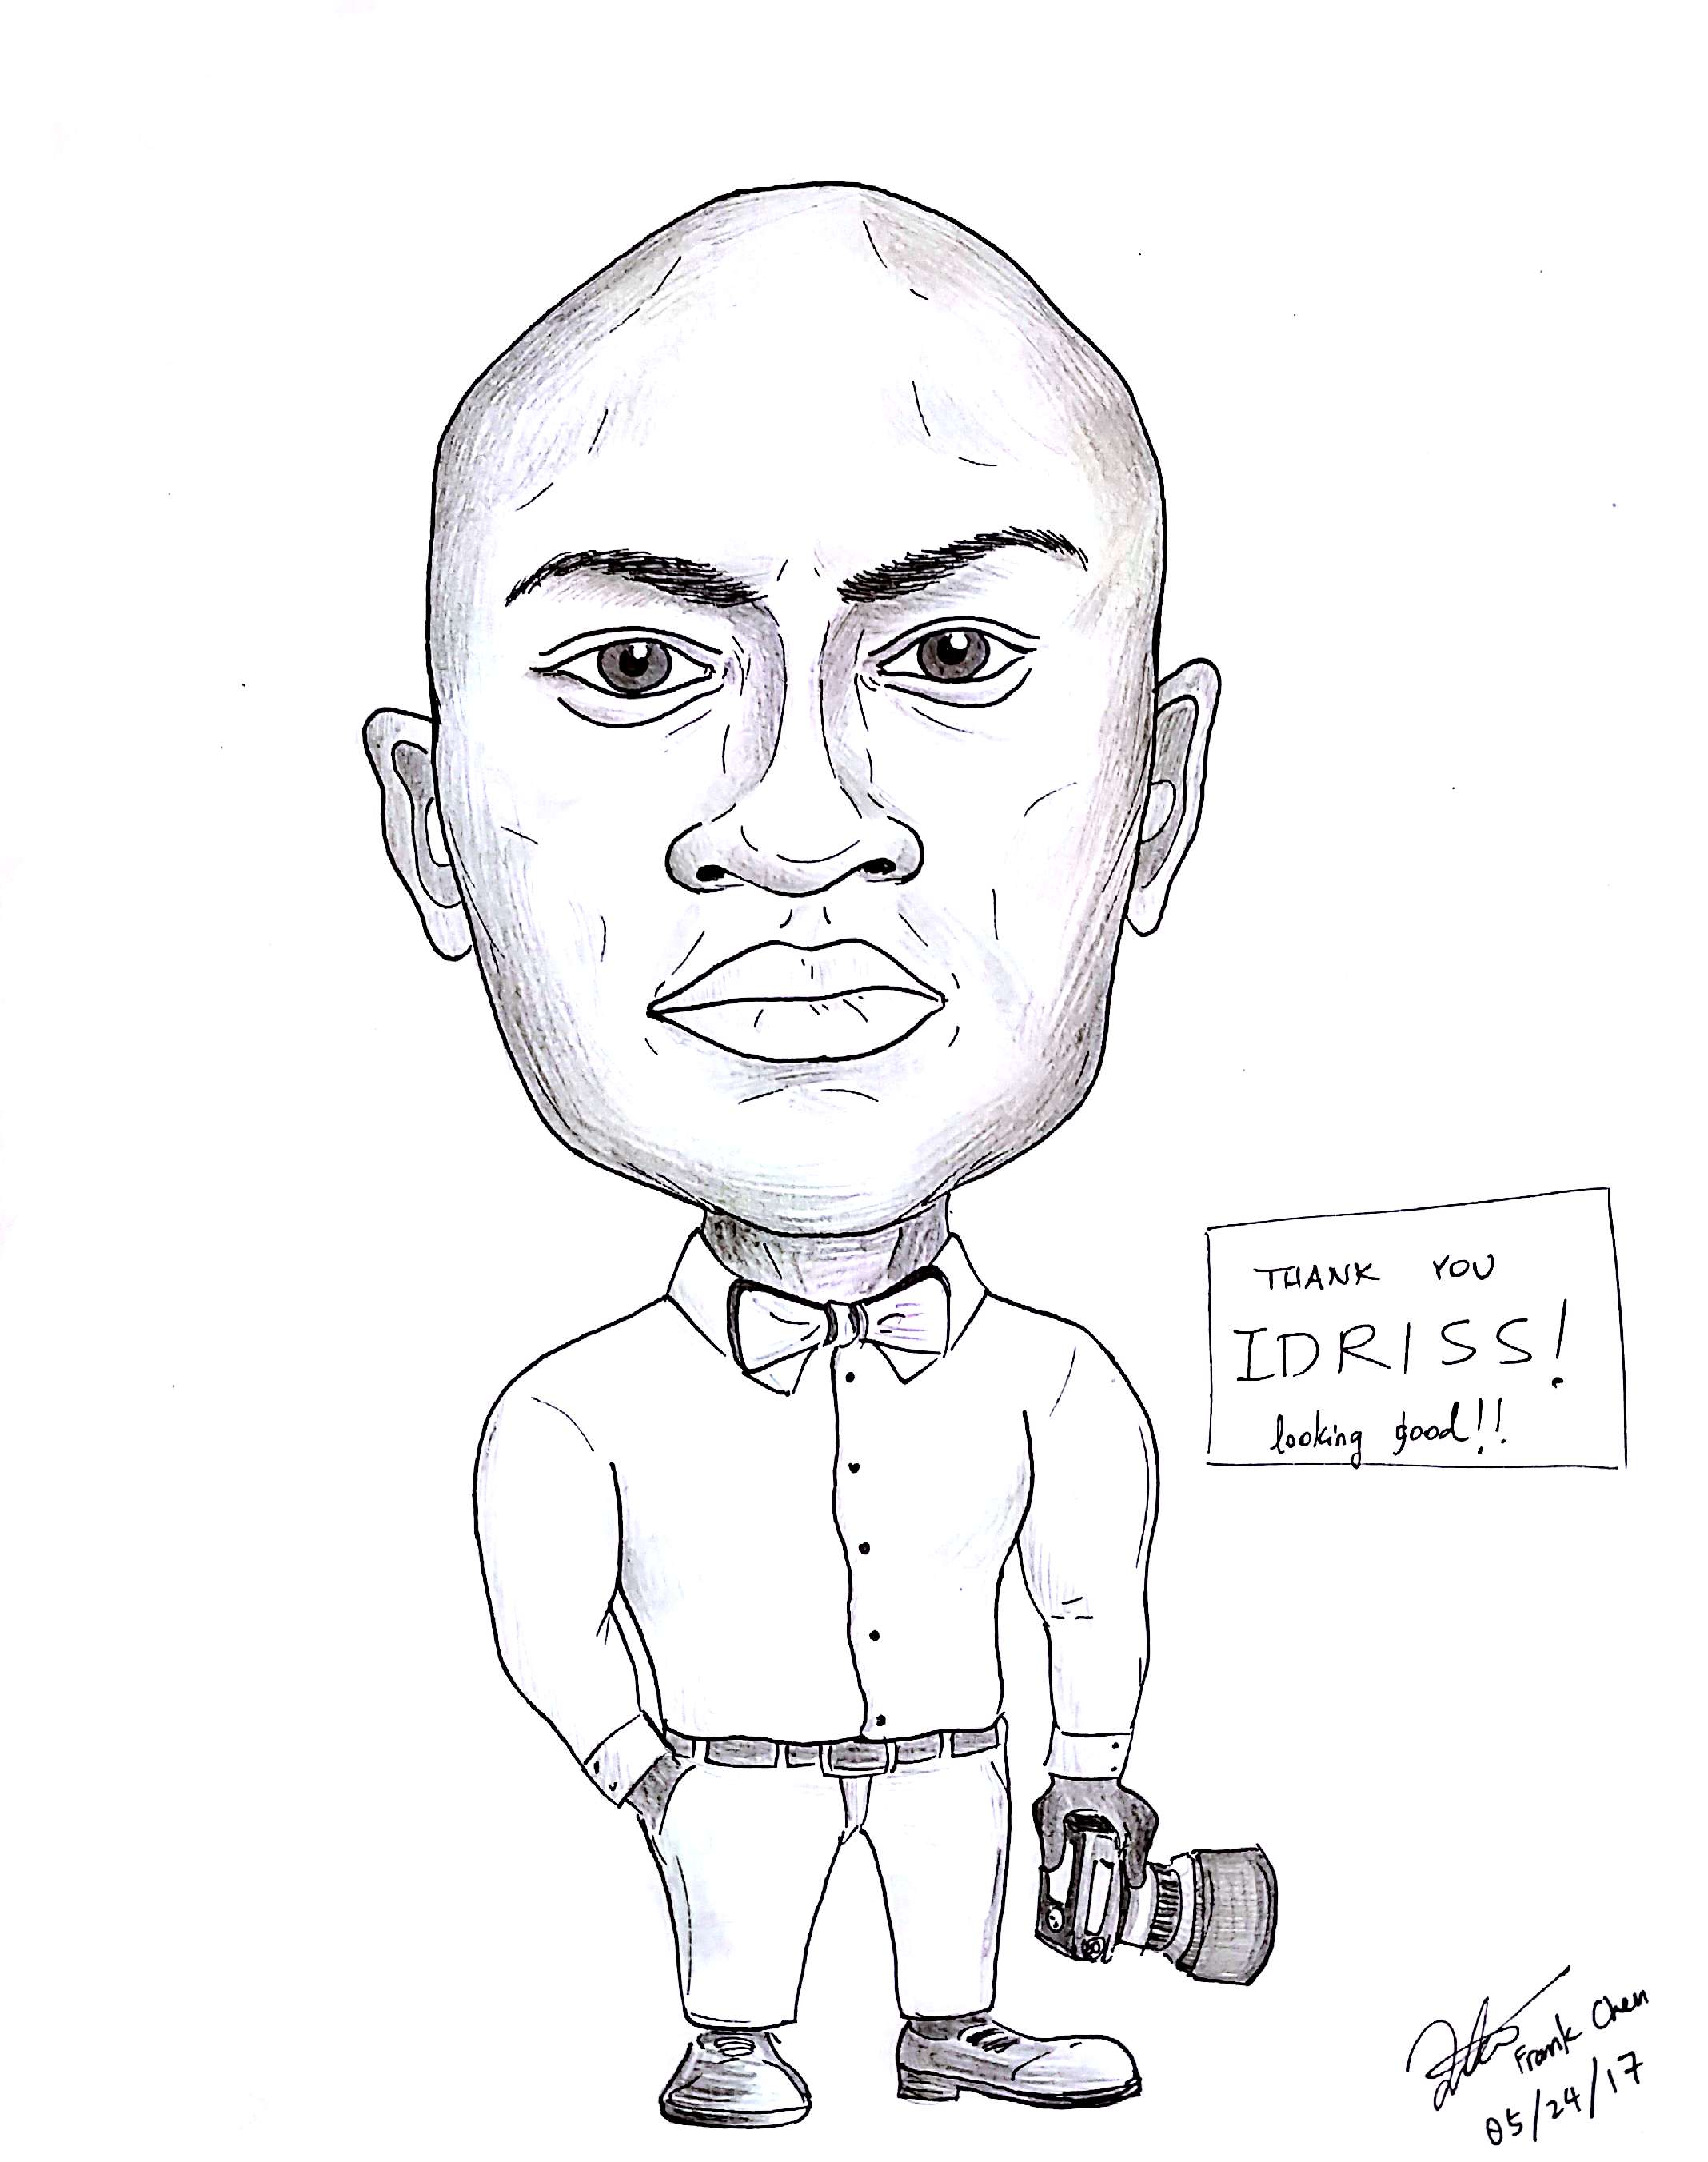 THANK YOU
IDRISS!
looking good!!
Frank Chen
05/24/17